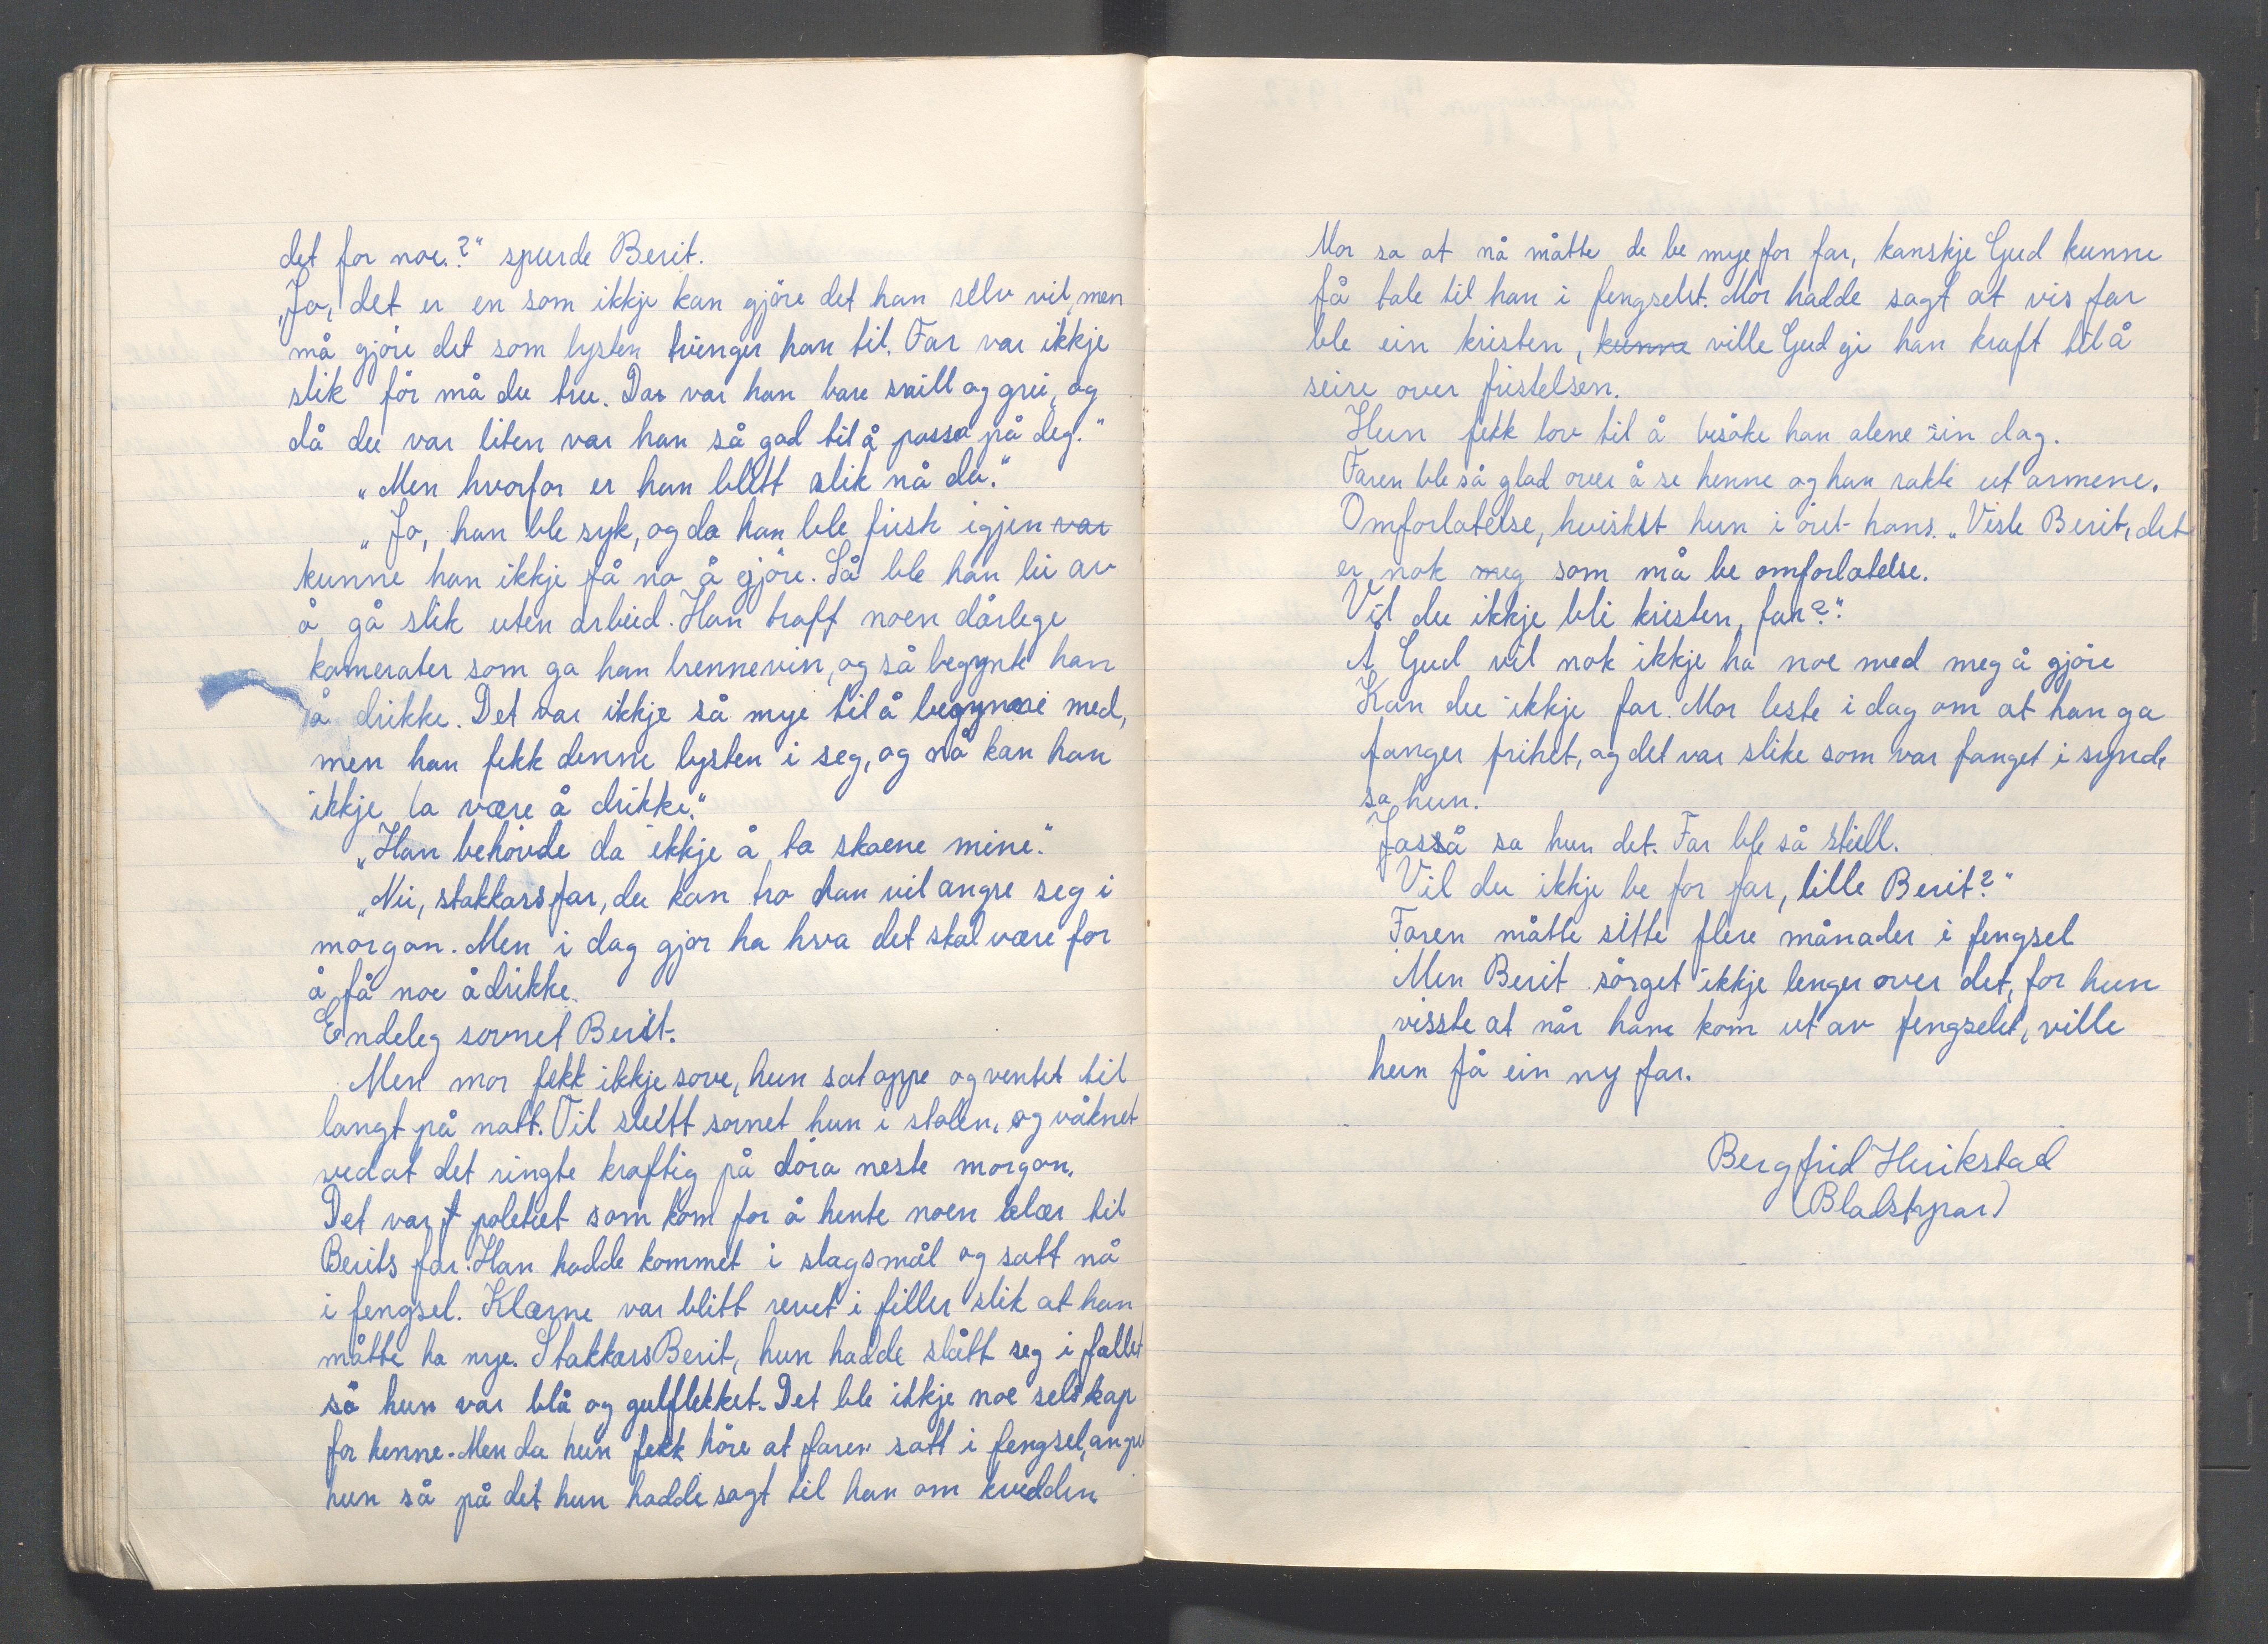 det for noe?" spurde Berit.
„Jo, det er en som ikkje kan gjöre det han selv vil, men
må gjöre det som lysten tvinger han til. Far var ikkje
slik för må du tru. Da var han bare snill og grei, og
då du var liten var han så god til å passa på deg."
„Men hvorfor er han blitt slik nå da."
„Jo, han ble syk, og da han ble frisk igjen var
kunne han ikkje få no å gjöre. Så ble han lei av
å gå slik uten arbeid. Han traff noen dårlege
kamerater som ga han brennevin, og så begynte han
å drikke. Det var ikkje så mye til å begynne med,
men han fekk denne lysten i seg, og nå kan han
ikkje la være å drikke."
„Han behövde da ikkje å ta skoene mine."
„Nei, stakkars far, du kan tro han vil angre seg i
morgon. Men i dag gjör ha hva det skal være for
å få noe å drikke.
Endeleg sovnet Berit.
Men mor fekk ikkje sove, hun sat oppe og ventet til
langt på natt. Til slutt sovnet hun i stolen, og våknet
ved at det ringte kraftig på döra neste morgon.
Det var politiet som kom for å hente noen klær til
Berits far. Han hadde kommet i slagsmål og satt nå
i fengsel. Klærne var blitt revet i filler slik at han
måtte ha nye. Stakkars Berit, hun hadde slått seg i fallet
så hun var blå og gulflekket. Det ble ikkje noe selskap
for henne. Men da hun fekk höre at faren satt i fengsel, angret
hun så på det hun hadde sagt til han om kvelden
Mor sa at nå måtte de be mye for far, kanskje Gud kunne
få tale til han i fengselet. Mor hadde sagt at vis far
ble ein kristen, kunne ville Gud gi han kraft til å
seire over fristelsen.
Hun fekk lov til å besöke han alene ein dag.
Faren ble så glad over å se henne og han rakte ut armene.
Omforlatelse, hviskst hun i öret hans. „Visle Berit, det
er nok meg som må be omforlatelse.
Vil du ikkje bli kristen, far?"
Å Gud vil nok ikkje ha noe med meg å gjöre
Kan du ikkje far. Mor leste i dag om at han ga
fanger frihet, og det var slike som var fanget i synd,
sa hun.
Jasså sa hun det. Far ble så still.
Vil du ikkje be for far, lille Berit?"
Faren måtte sitte flere månader i fengsel
Men Berit sörget ikkje lenger over det, for hun
visste at når han kom ut av fengselet, ville
hun få ein ny far.
Bergfrid Herikstad
(Bladstyrar)